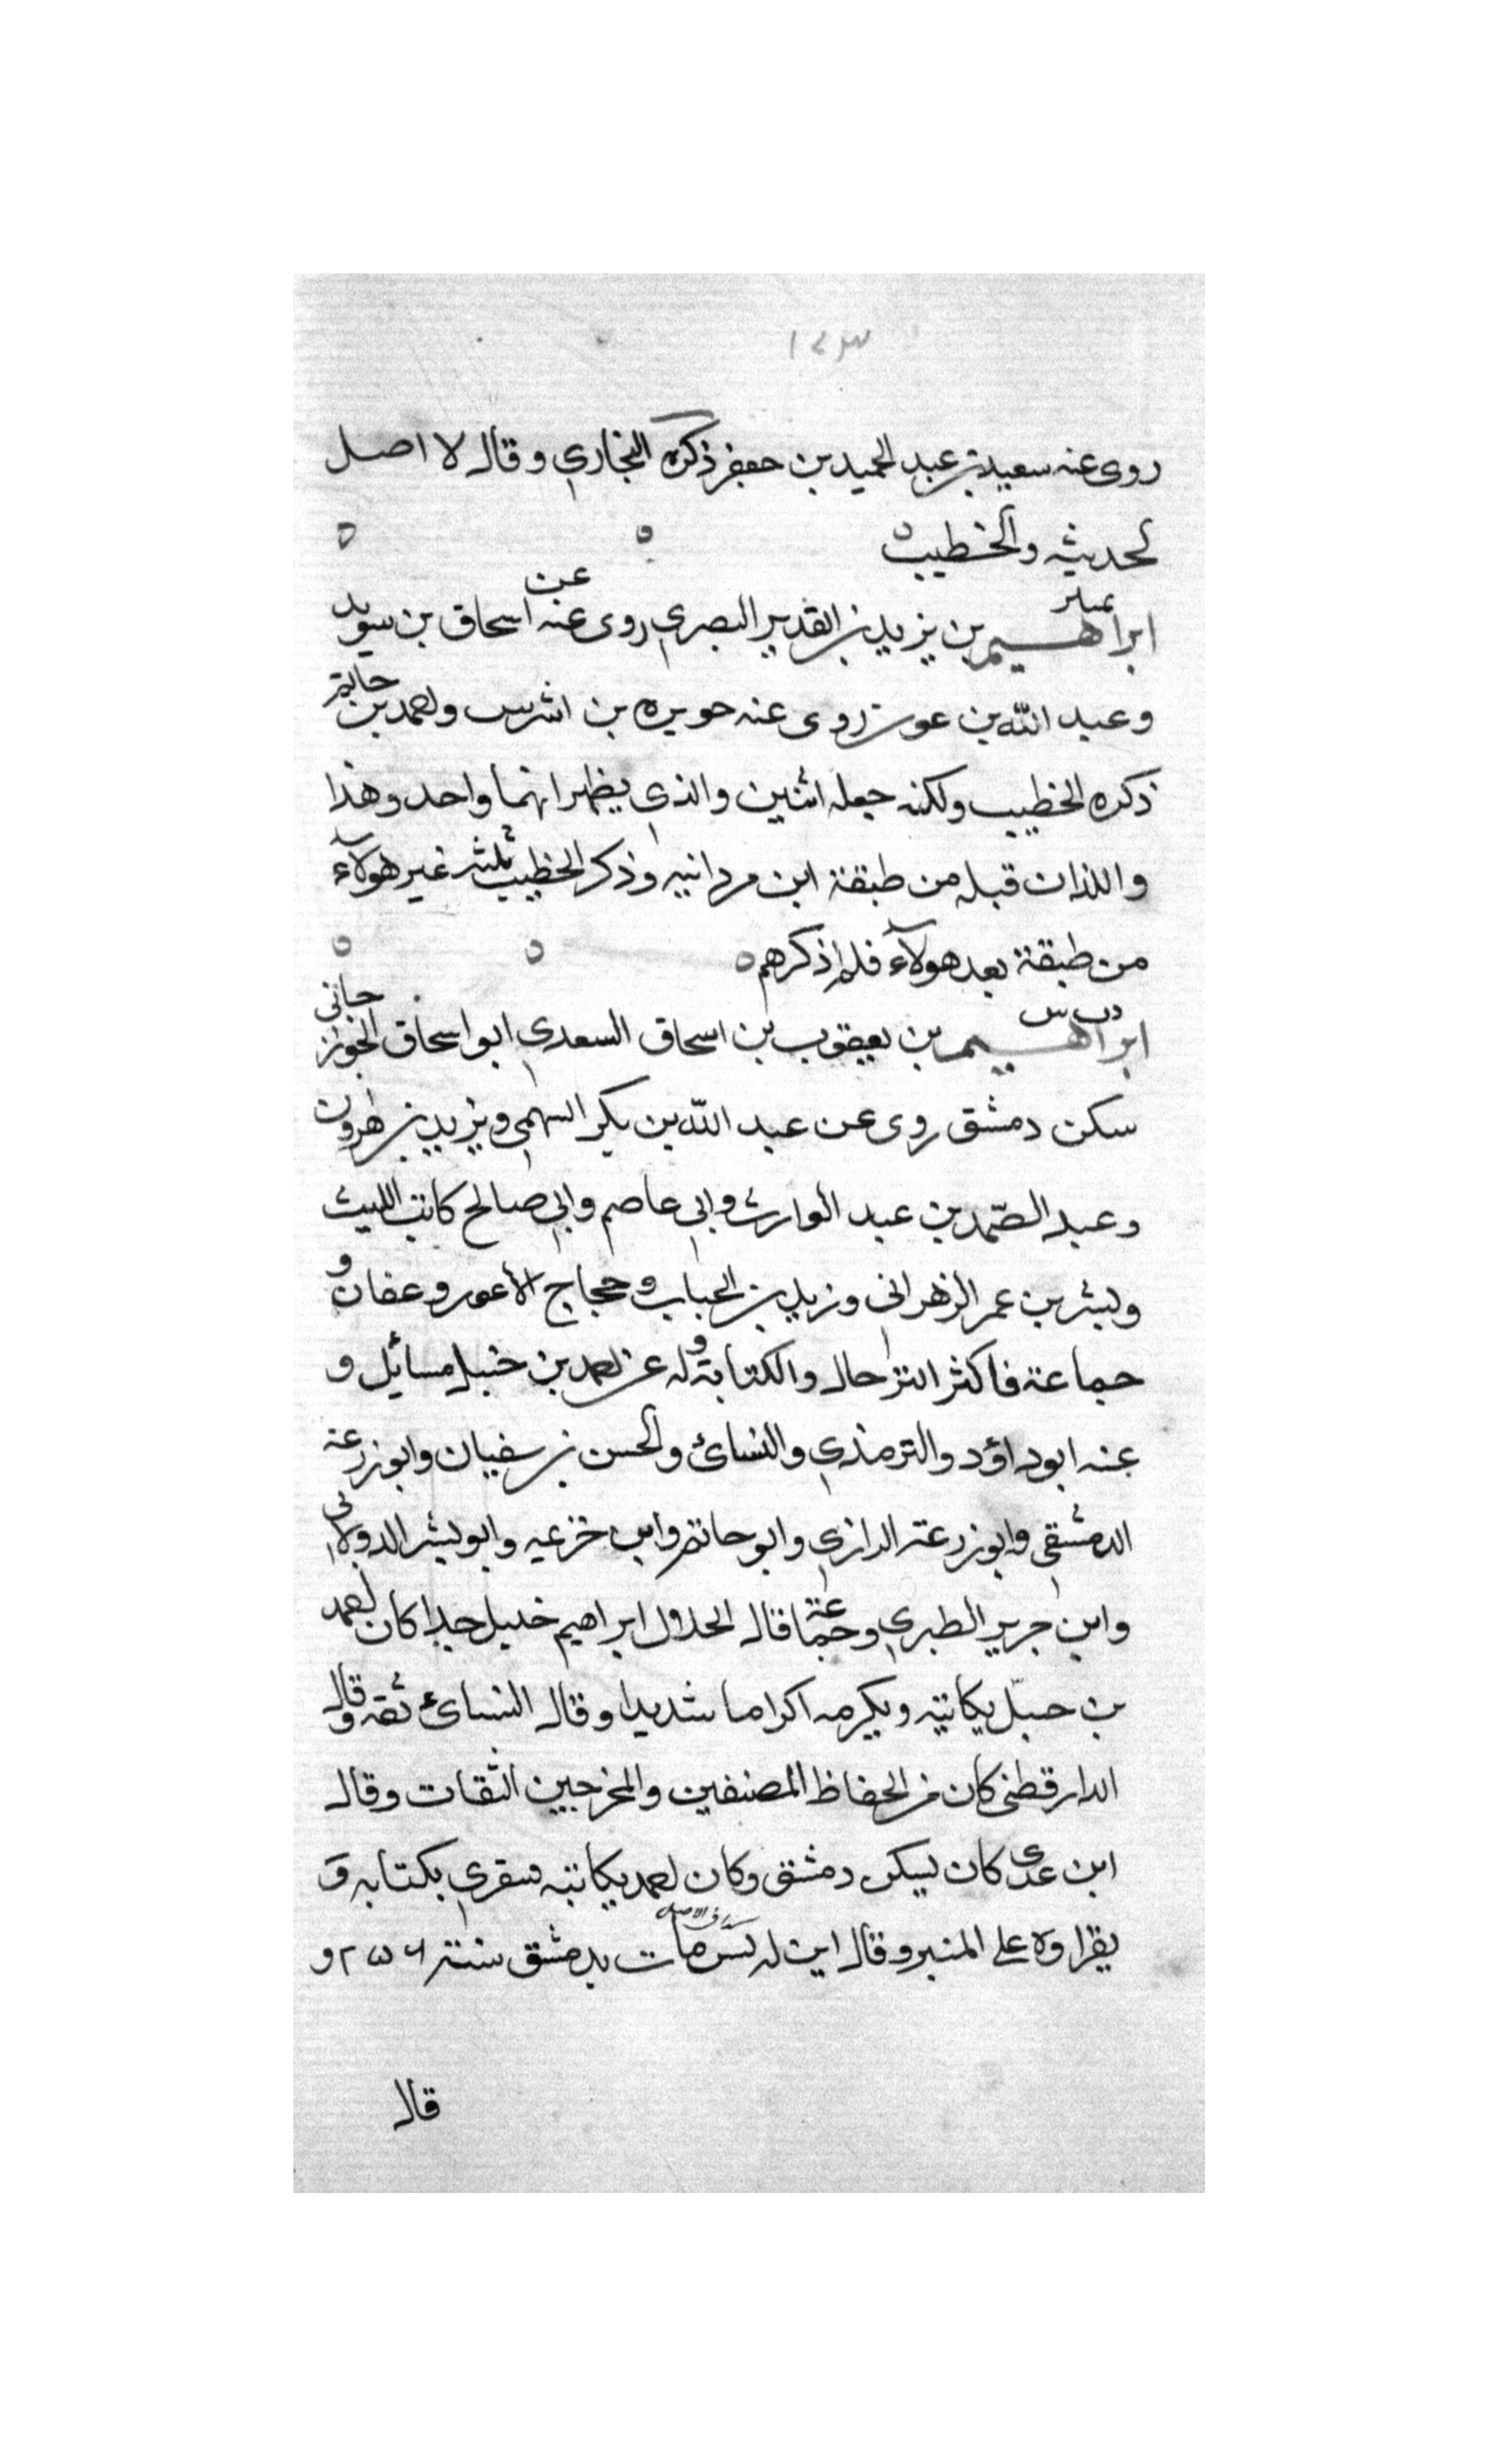 ١٤٣
روى عنه سعيد بن عبد الحميد بن جعفر ذكره البخاري وقال لا اصل
لحديثه والخطيب
تمييز
ابراهيم بن يزيد بن القديد البصري روى عنه عن اسحاق بن سويد
وعبد الله بن عون روى عنه حويره بن اشرس ومحمد بن حاتم
ذكره الخطيب ولكنه جعله اثنين والذي يظهر انهما واحد وهذا
واللذان قبله من طبقة ابن مردانبه وذكر الخطيب ثلثه غير هولاء
من طبقة بعد هولاء فلم اذكرهم
د ت س
ابراهيم بن يعقوب بن اسحاق السعدي ابو اسحاق الجوزجاني
سكن دمشق روى عن عبد الله بن بكر السهمي ويزيد بن هارون
وعبد الصمد بن عبد الوارث وابي عاصم وابي صالح كاتب الليث
وبشر بن عمر الزهراني وزيد بن الحباب وحجاج الاعور وعفان و
جماعة فاكثر الترحال والكتابة وله عن احمد بن حنبل مسائل و
عنه ابوداؤد والترمذي والنسائ والحسن بن سفيان وابوزرعة
الدمشقي وابوزرعة الرازي وابوحاتم وابن خزيمه وابوبشر الدولابي
وابن جرير الطبري وجماعة قال الخلال ابراهيم جليل جدا كان احمد
بن حنبل يكاتبه ويكرمه اكراما شديدا وقال النسائ ثقه وقال
الدارقطني كان من الحفاظ المصنفين والمخرجين الثقات وقال
ابن عدى كان يسكن دمشق وكان احمد يكاتبه فيقوي بكتابه و
يقراوه على المنبر وقال ابن مات بدمشق سنة ٢٥٦ و
قال